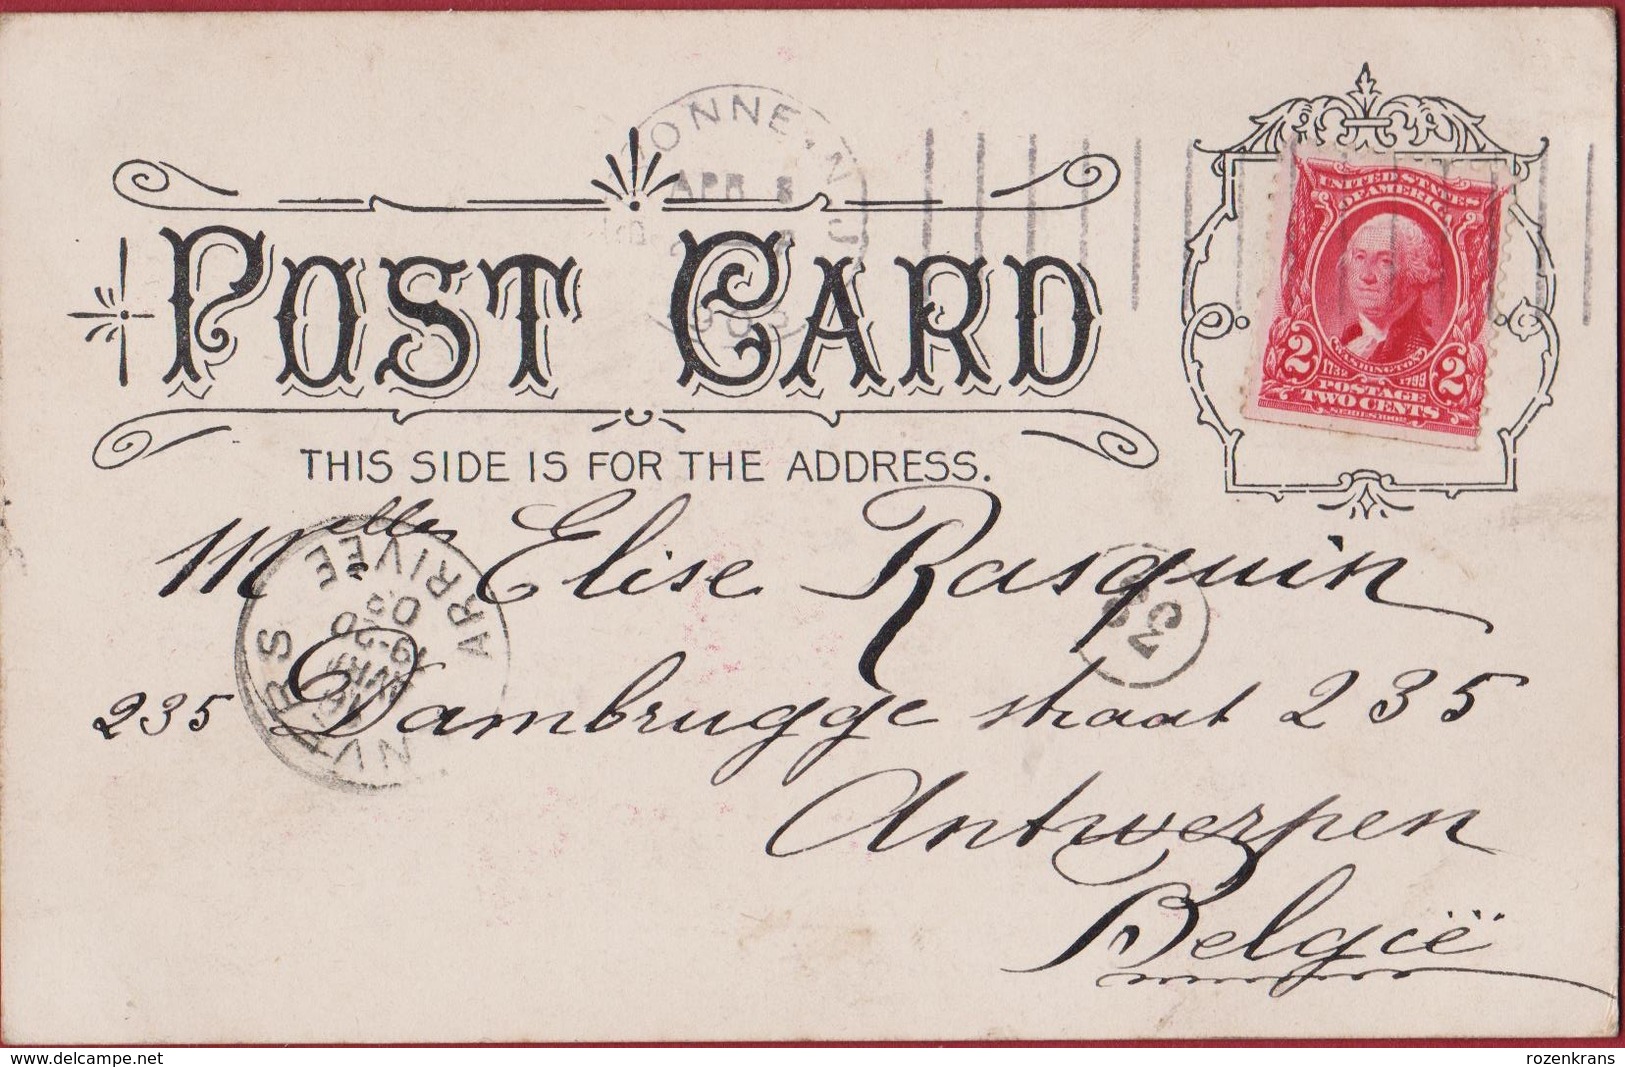 BAYONNE, N.J.
APR 8
1905
UNITED STATES
OF AMERICA
2 WASHINGTON 2
1732 1799
POSTAGE
TWO CENTS
SERIES 1902
POST CARD
THIS SIDE IS FOR THE ADDRESS.
Melle Elise Rasquin
235 Dambrugge straat 235
Antwerpen
België
ANVERS ARRIVÉE
19-20
05
delcampe.net
rozenkrans